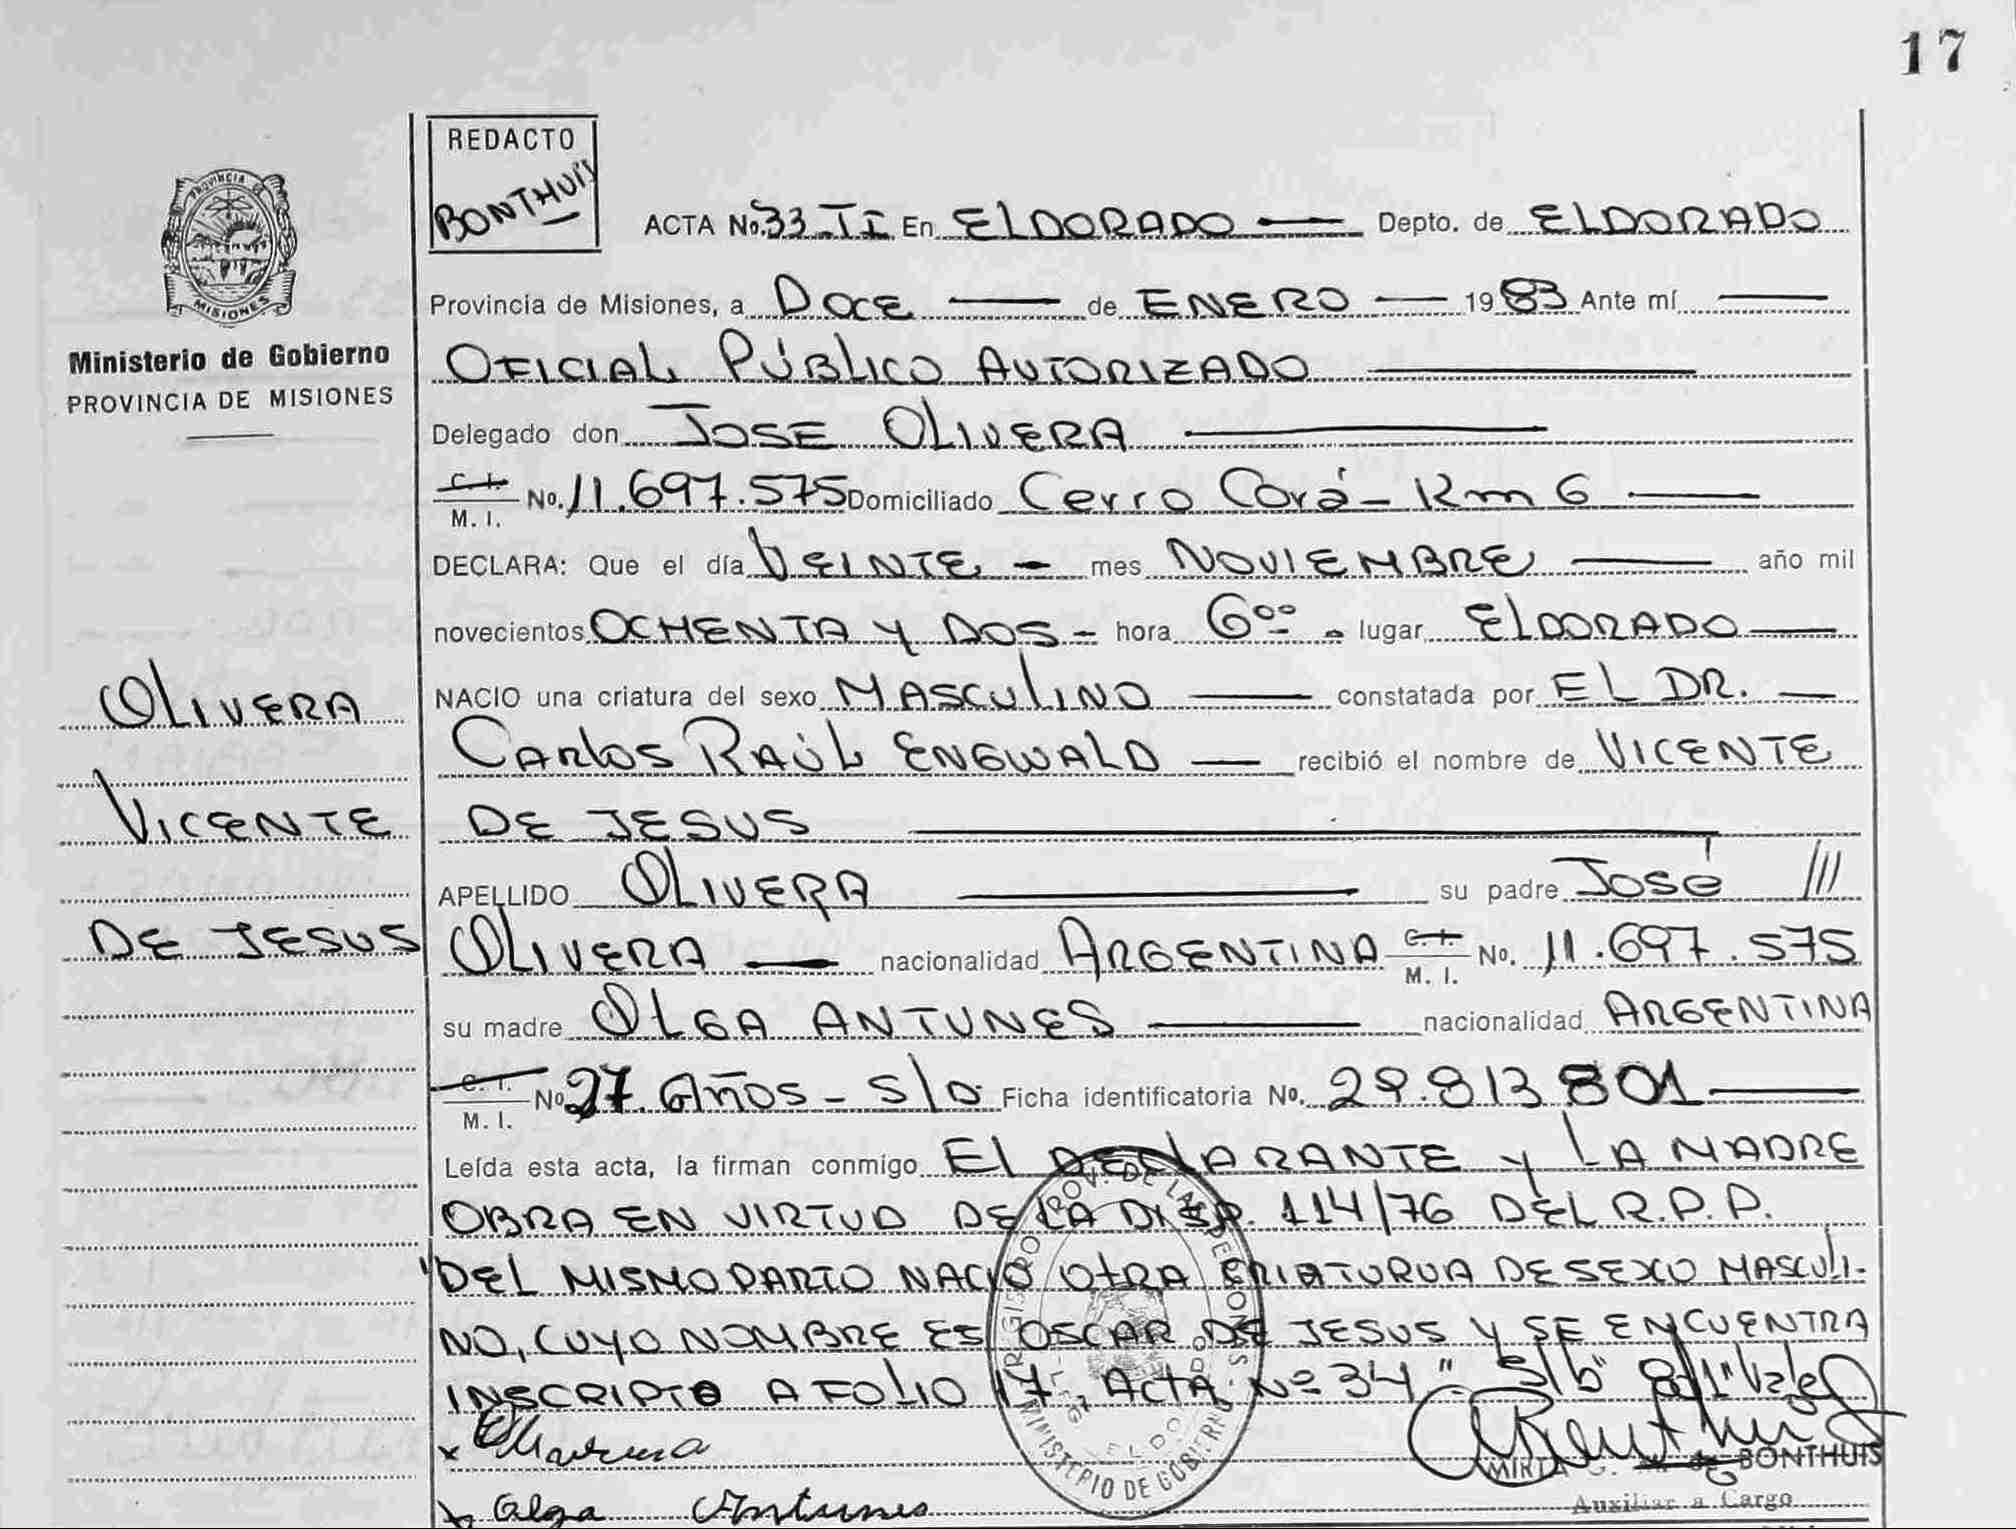 17
REDACTO
BONTHUIS
PROVINCIA DE
MISIONES
Ministerio de Gobierno
PROVINCIA DE MISIONES
ACTA No. 33-II En ElDORADO — Depto. de ElDORADO
Provincia de Misiones, a DOCE — de ENERO — 1983 Ante mí —
OFICIAL PÚBLICO AUTORIZADO —
Delegado don JOSE OLIVERA —
C. I. / M. I. No. 11.697.575 Domiciliado Cerro Corá - Km 6 —
DECLARA: Que el día VEINTE - mes NOVIEMBRE — año mil
novecientos OCHENTA Y DOS - hora 6ºº - lugar ElDORADO —
NACIO una criatura del sexo MASCULINO — constatada por EL DR. —
CARLOS RAÚL ENGWALD — recibió el nombre de VICENTE
DE JESUS —
APELLIDO OLIVERA — su padre José ///
OLIVERA — nacionalidad ARGENTINA C. I. / M. I. No. 11.697.575
su madre OLGA ANTUNES — nacionalidad ARGENTINA
C. I. / M. I. No 27. Años - S/D. Ficha identificatoria No. 29.813 801 —
Leída esta acta, la firman conmigo El DECLARANTE Y LA MADRE
OBRA EN VIRTUD DE LA DISP. 114/76 DEL R.P.P.
"DEL MISMO PARTO NACIO OTRA CRIATURUA DE SEXO MASCULI-
NO, CUYO NOMBRE ES OSCAR DE JESUS Y SE ENCUENTRA
INSCRIPTO A FOLIO 17, ACTA Nº 34" S/b
OLIVERA
VICENTE
DE JESUS
REGISTRO PROV. DE LAS PERSONAS
MINISTERIO DE GOBIERNO
x
x Olga Antunes
MIRTA BONTHUIS
Auxiliar a Cargo